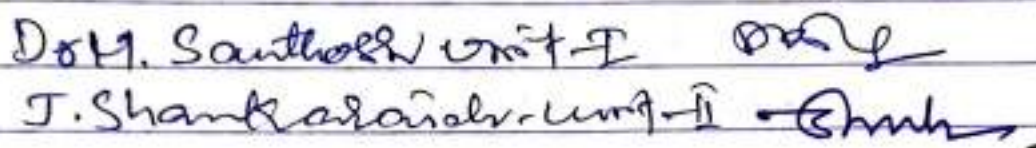 Dr M. Santhosh unit-I
J. Shankaraiah. unit-II